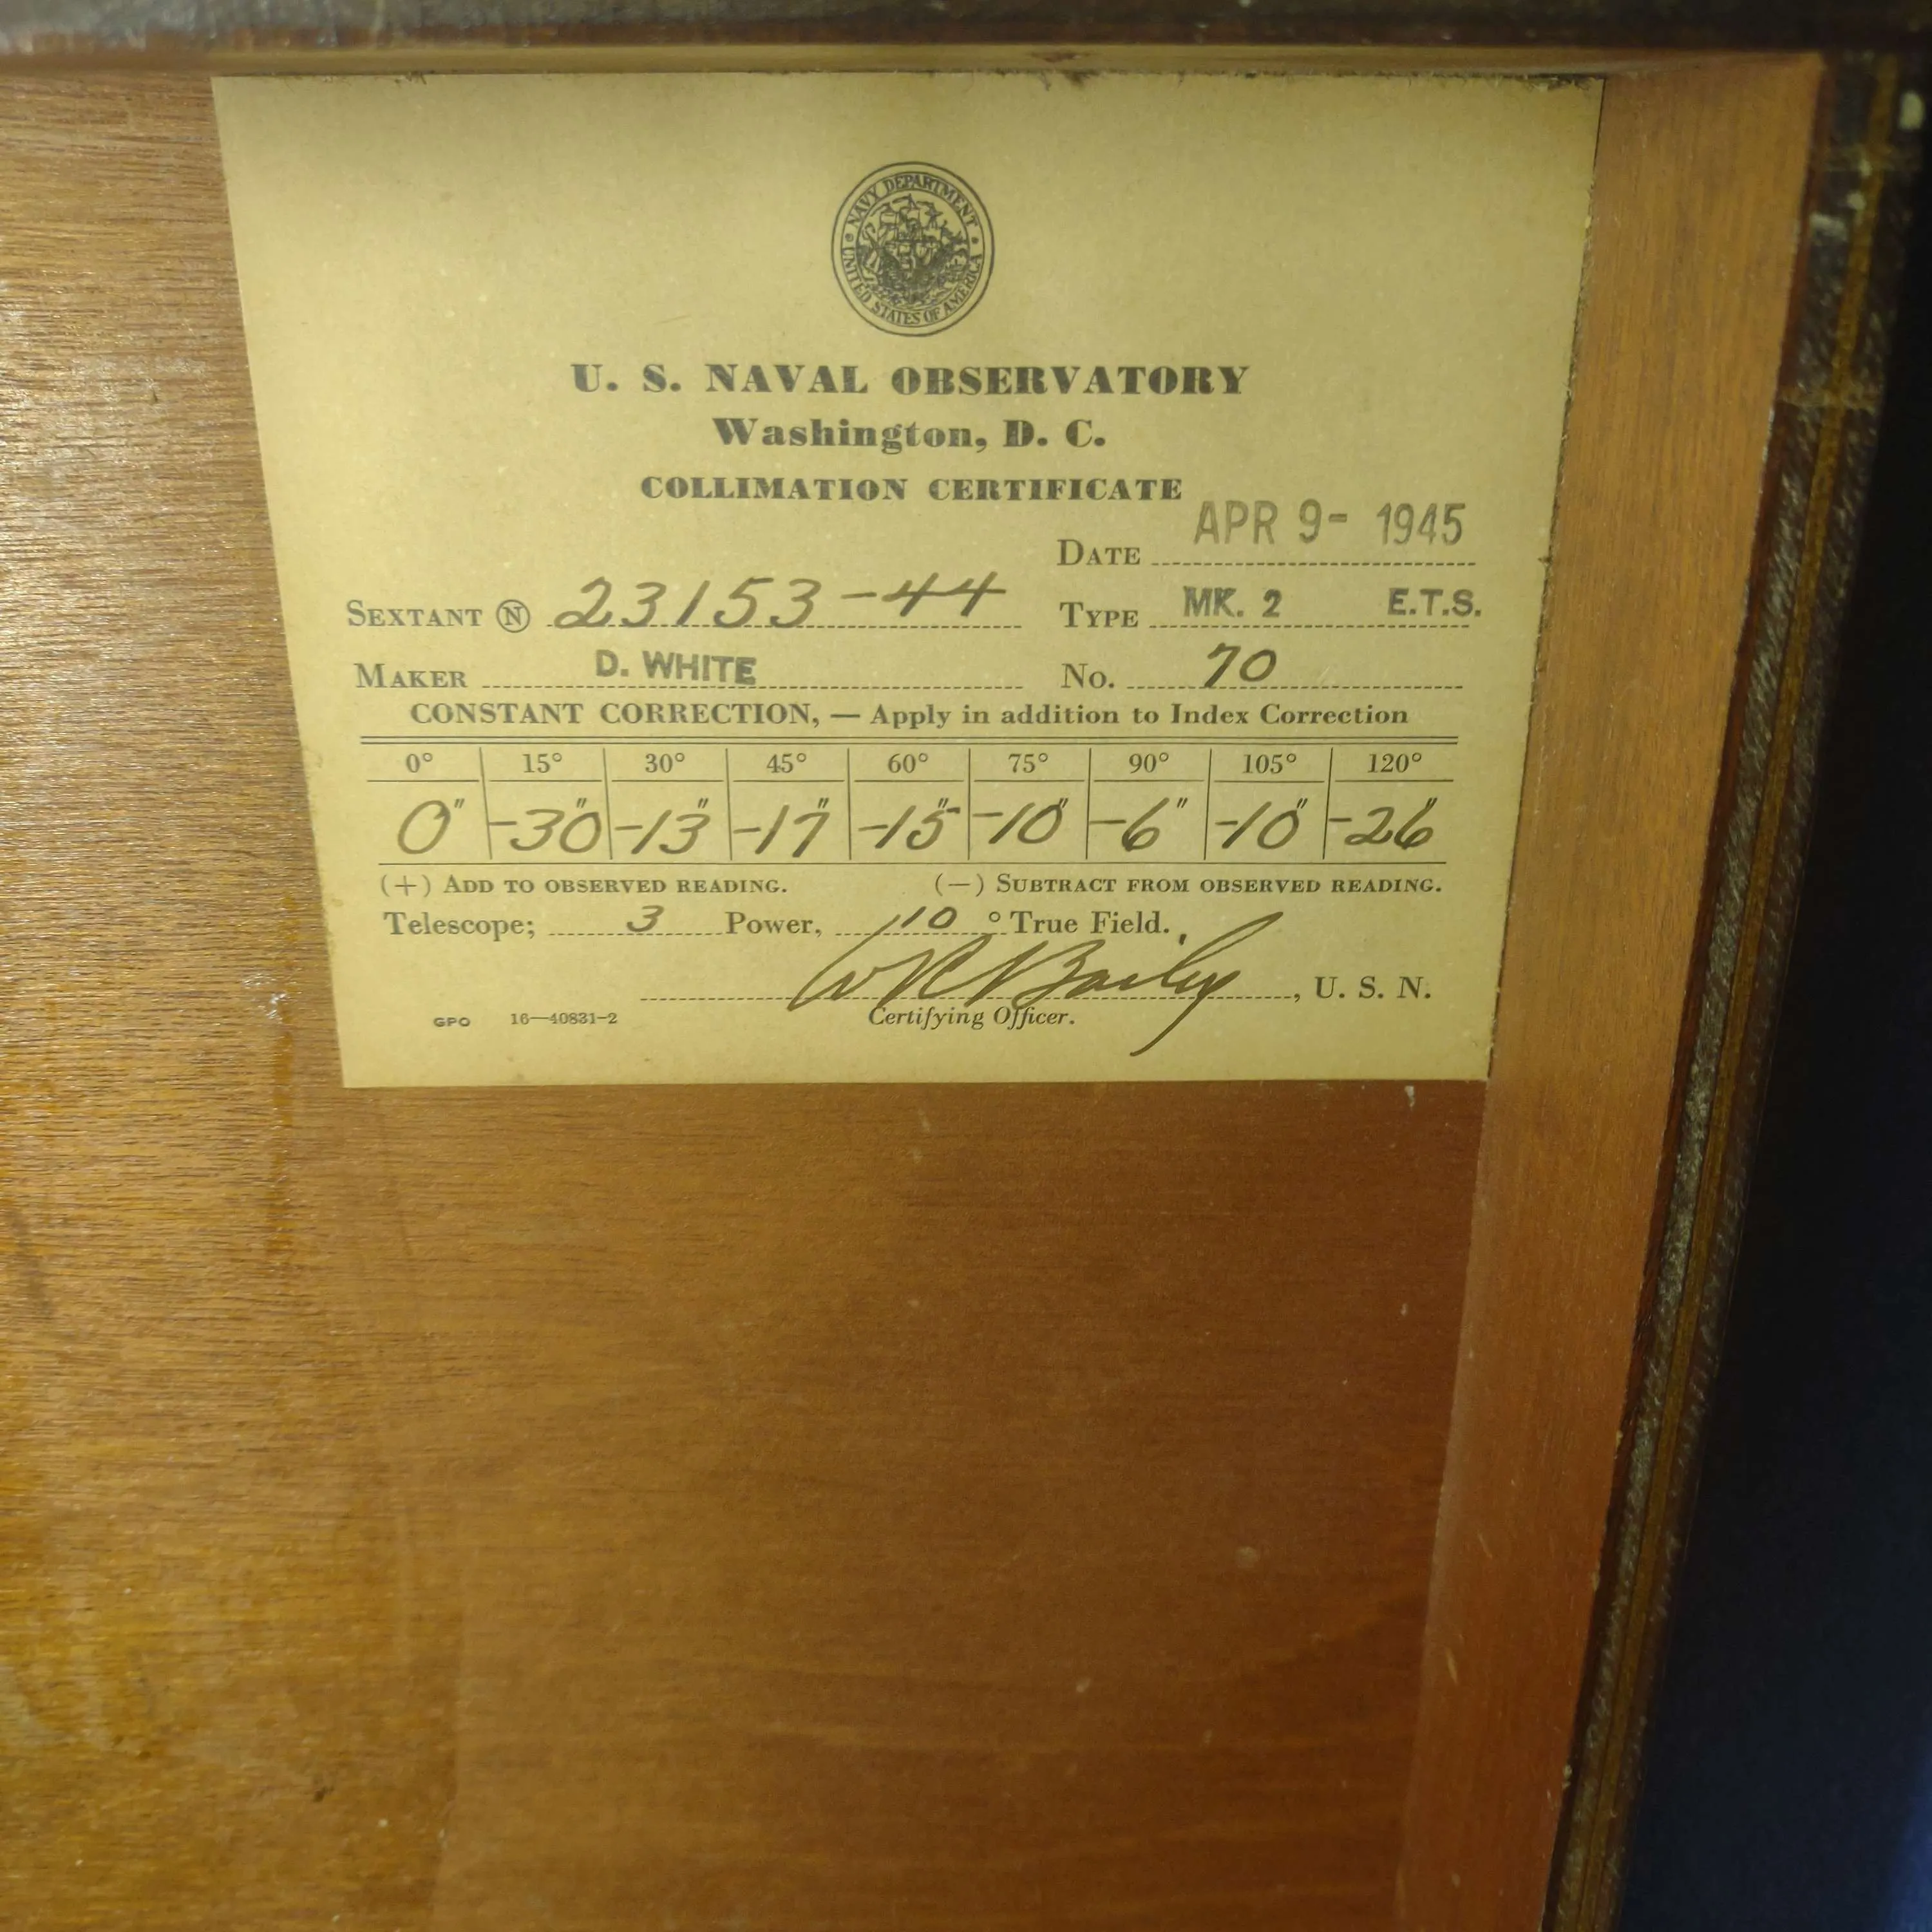 NAVY DEPARTMENT
UNITED STATES OF AMERICA
U. S. NAVAL OBSERVATORY
Washington, D. C.
COLLIMATION CERTIFICATE
DATE APR 9- 1945
SEXTANT Ⓝ 23153-44 TYPE MK. 2 E.T.S.
MAKER D. WHITE No. 70
CONSTANT CORRECTION, — Apply in addition to Index Correction
0° 15° 30° 45° 60° 75° 90° 105° 120°
0" -30" -13" -17" -15" -10" -6" -10" -26"
(+) ADD TO OBSERVED READING. (—) SUBTRACT FROM OBSERVED READING.
Telescope; 3 Power, 10 ° True Field.
W R Bailey, U. S. N.
GPO 16—40831-2 Certifying Officer.